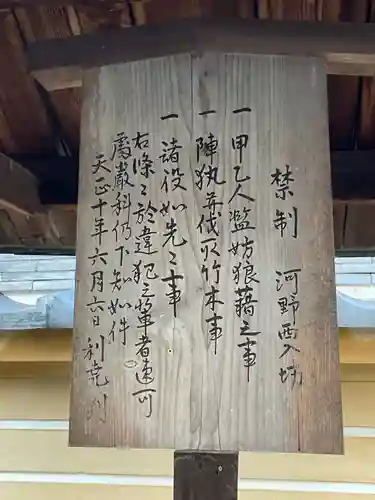 禁制 河野西入坊
一 甲乙人濫妨狼藉之事
一 陣執并伐取竹木事
一 諸役如先々事
右條々於違犯之輩者速可
處嚴科仍下知如件
天正十年六月六日 利尭判